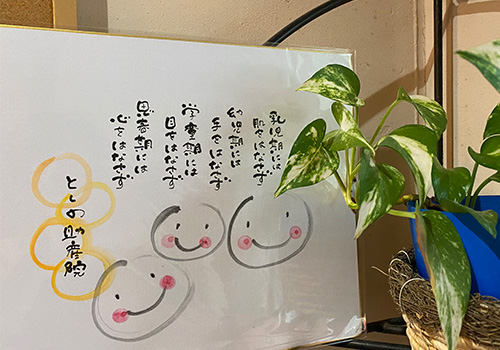 乳児期には
肌をはなさず
幼児期には
手をはなさず
学童期には
目をはなさず
思春期には
心をはなさず
としの助産院